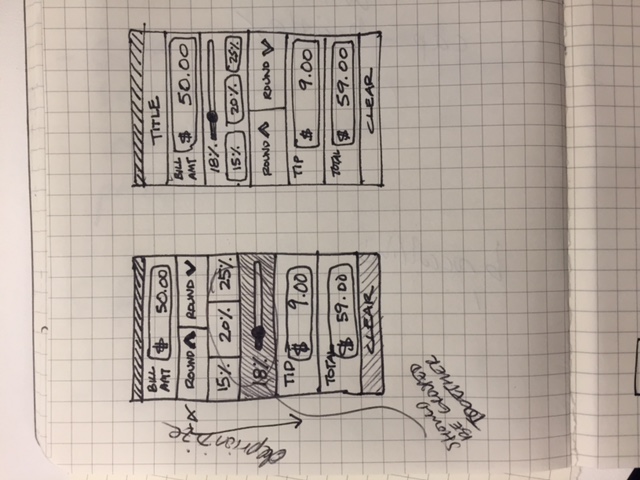 BILL AMT $ 50.00
ROUND ROUND
15% 20% 25%
18%
TIP $ 9.00
TOTAL $ 59.00
CLEAR
deprioritize
SHOULD
BE GROUPED
TOGETHER
TITLE
BILL AMT $ 50.00
18%
15% 20% 25%
ROUND ROUND
TIP $ 9.00
TOTAL $ 59.00
CLEAR